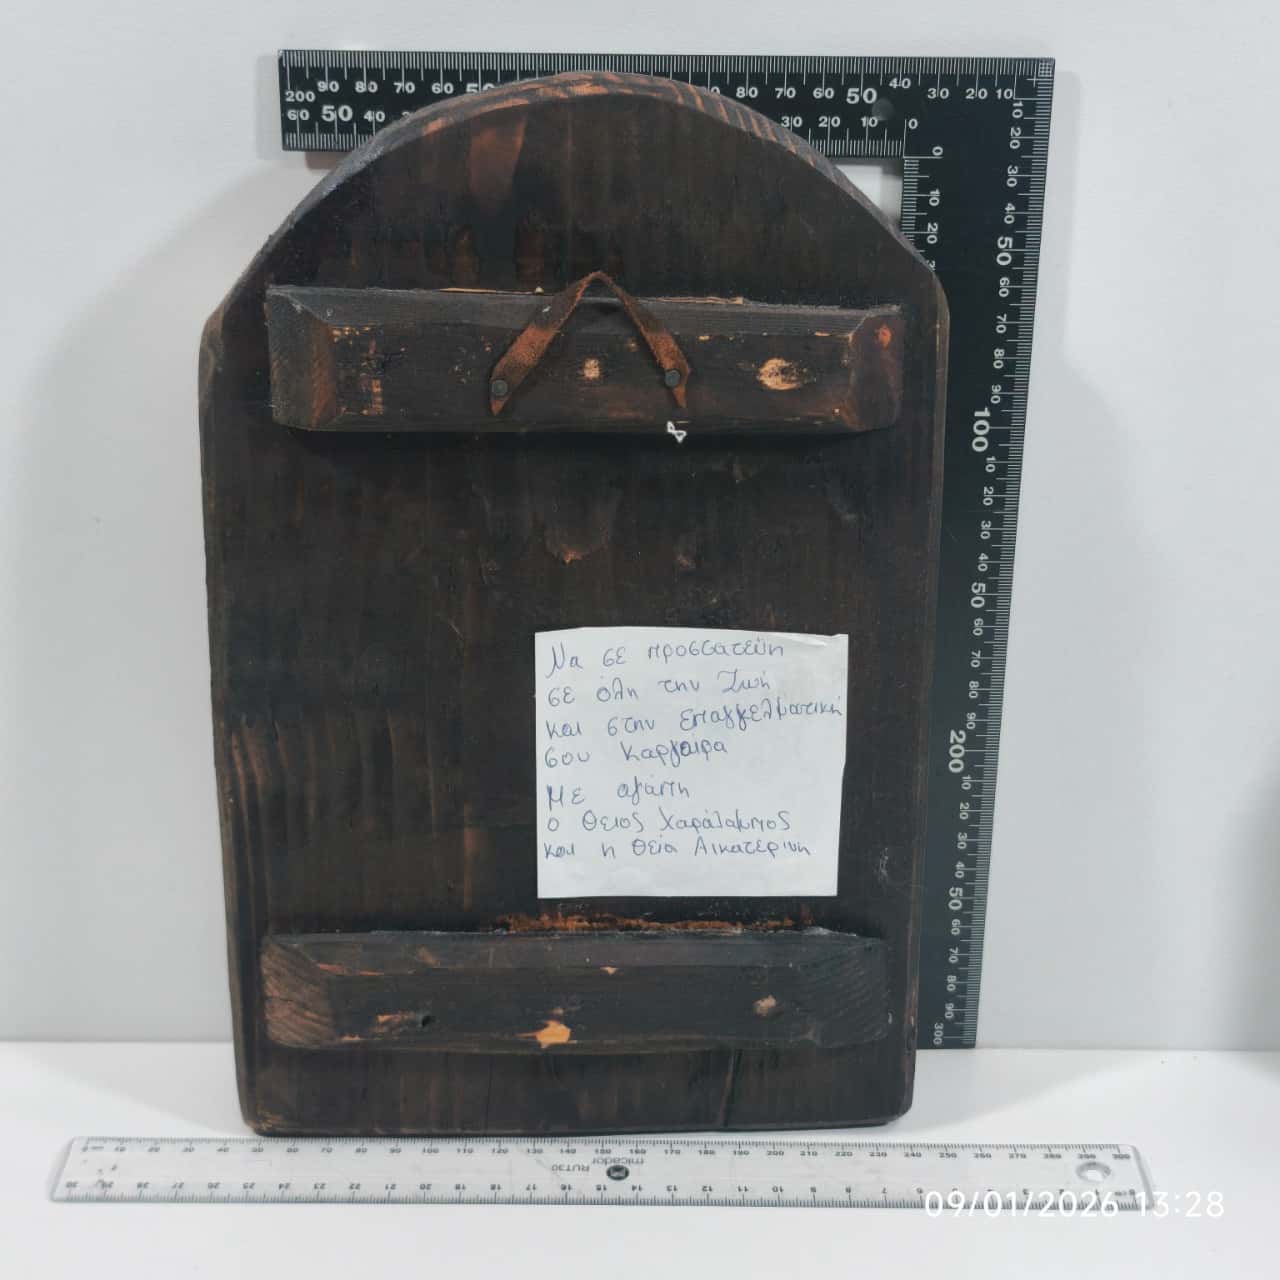 Να σε προσσατεύη
σε όλη την Ζωή
και στην επαγγελματική
σου Καργαίρα
Με αγάπη
ο Θειος Χαράλαμπος
και η Θεία Αικατερινη
micador
RUT30
09/01/2026 13:28